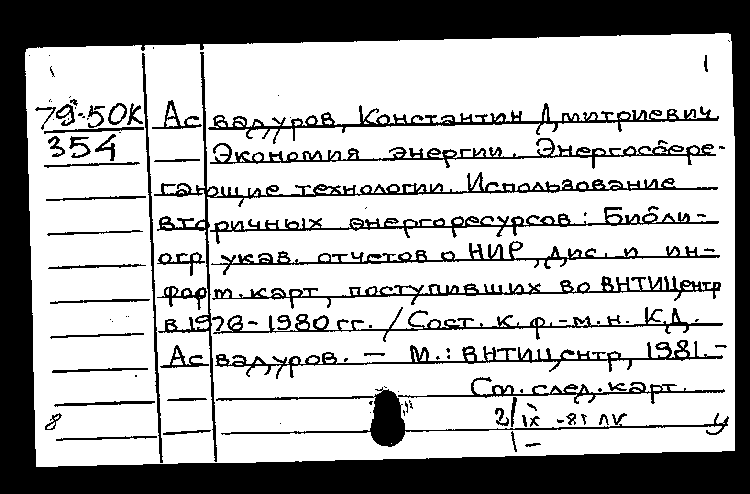 1
79-50К Асвадуров, Константин Дмитриевич
354 Экономия энергии. Энергосбере-
гающие технологии. Использование
вторичных энергоресурсов: Библи-
огр. указ. отчетов о НИР, дис. и ин-
форм. карт, поступивших во ВНТИЦентр
в 1976-1980 гг. / Сост. к. ф.-м. н. К.Д.
Асвадуров. — М.: ВНТИЦентр, 1981.-
См. след. карт.
8 2/IX -81 У